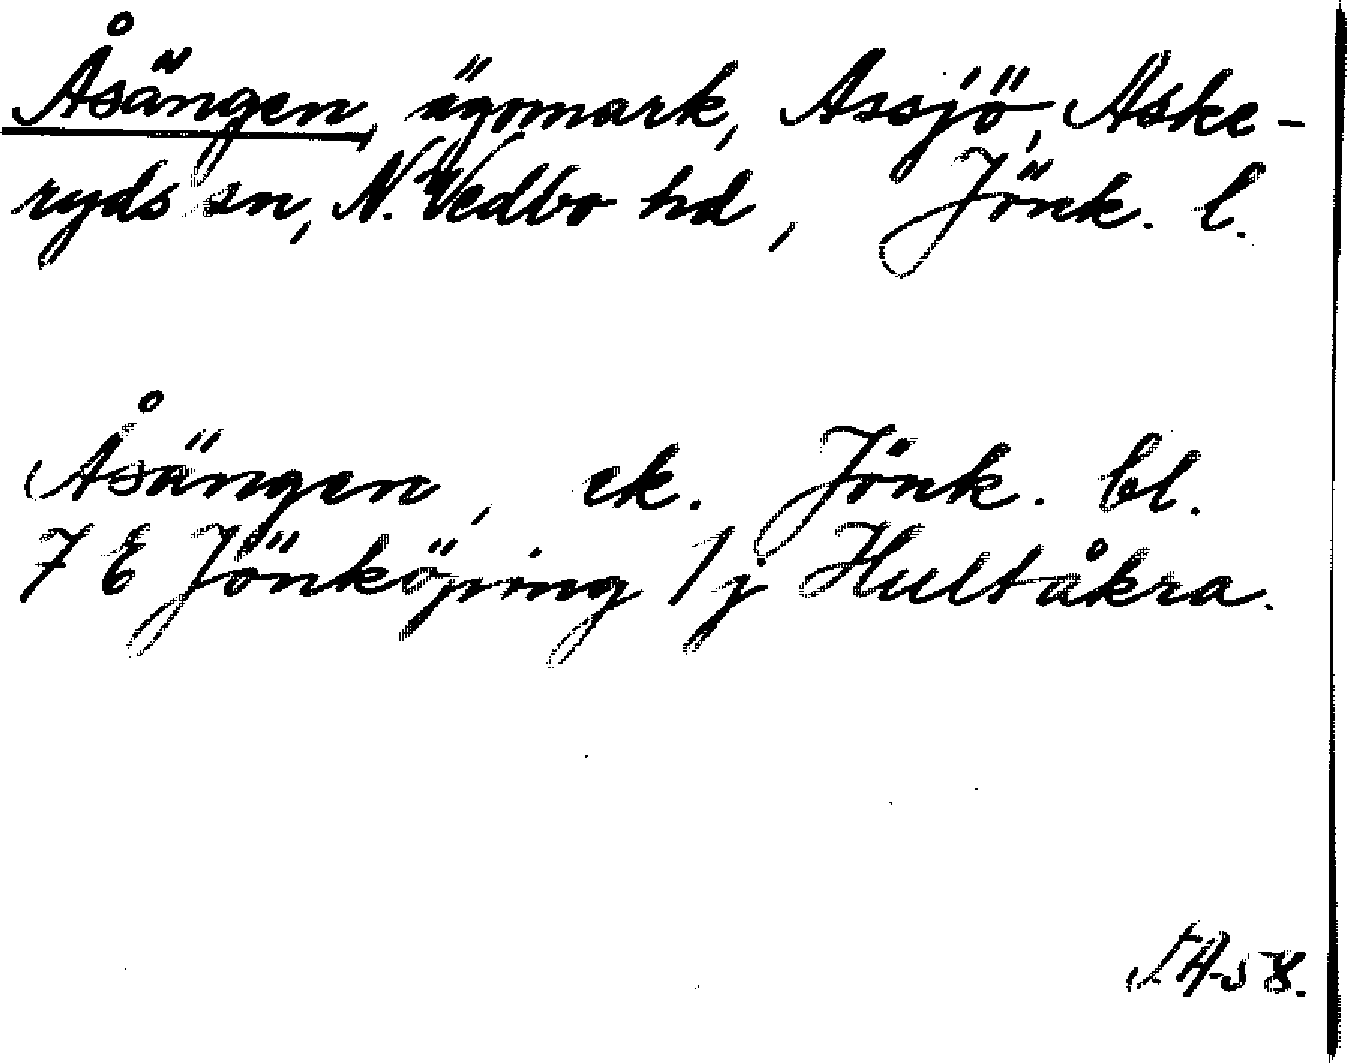 Åsängen, ägomark, Assjö, Aske-
ryds sn, N. Vedbo hd, Jönk. l.
Åsängen, ek. Jönk. bl.
7 E Jönköping 1 j Hultåkra.
58.